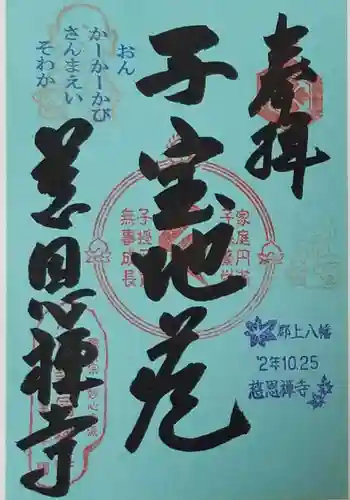 奉拝
子宝地蔵
慈恩禅寺
おん
かーかーかび
さんまえい
そわか
家庭円満
子授
無事成長
郡上八幡
'2年10.25
慈恩禅寺
妙心寺派